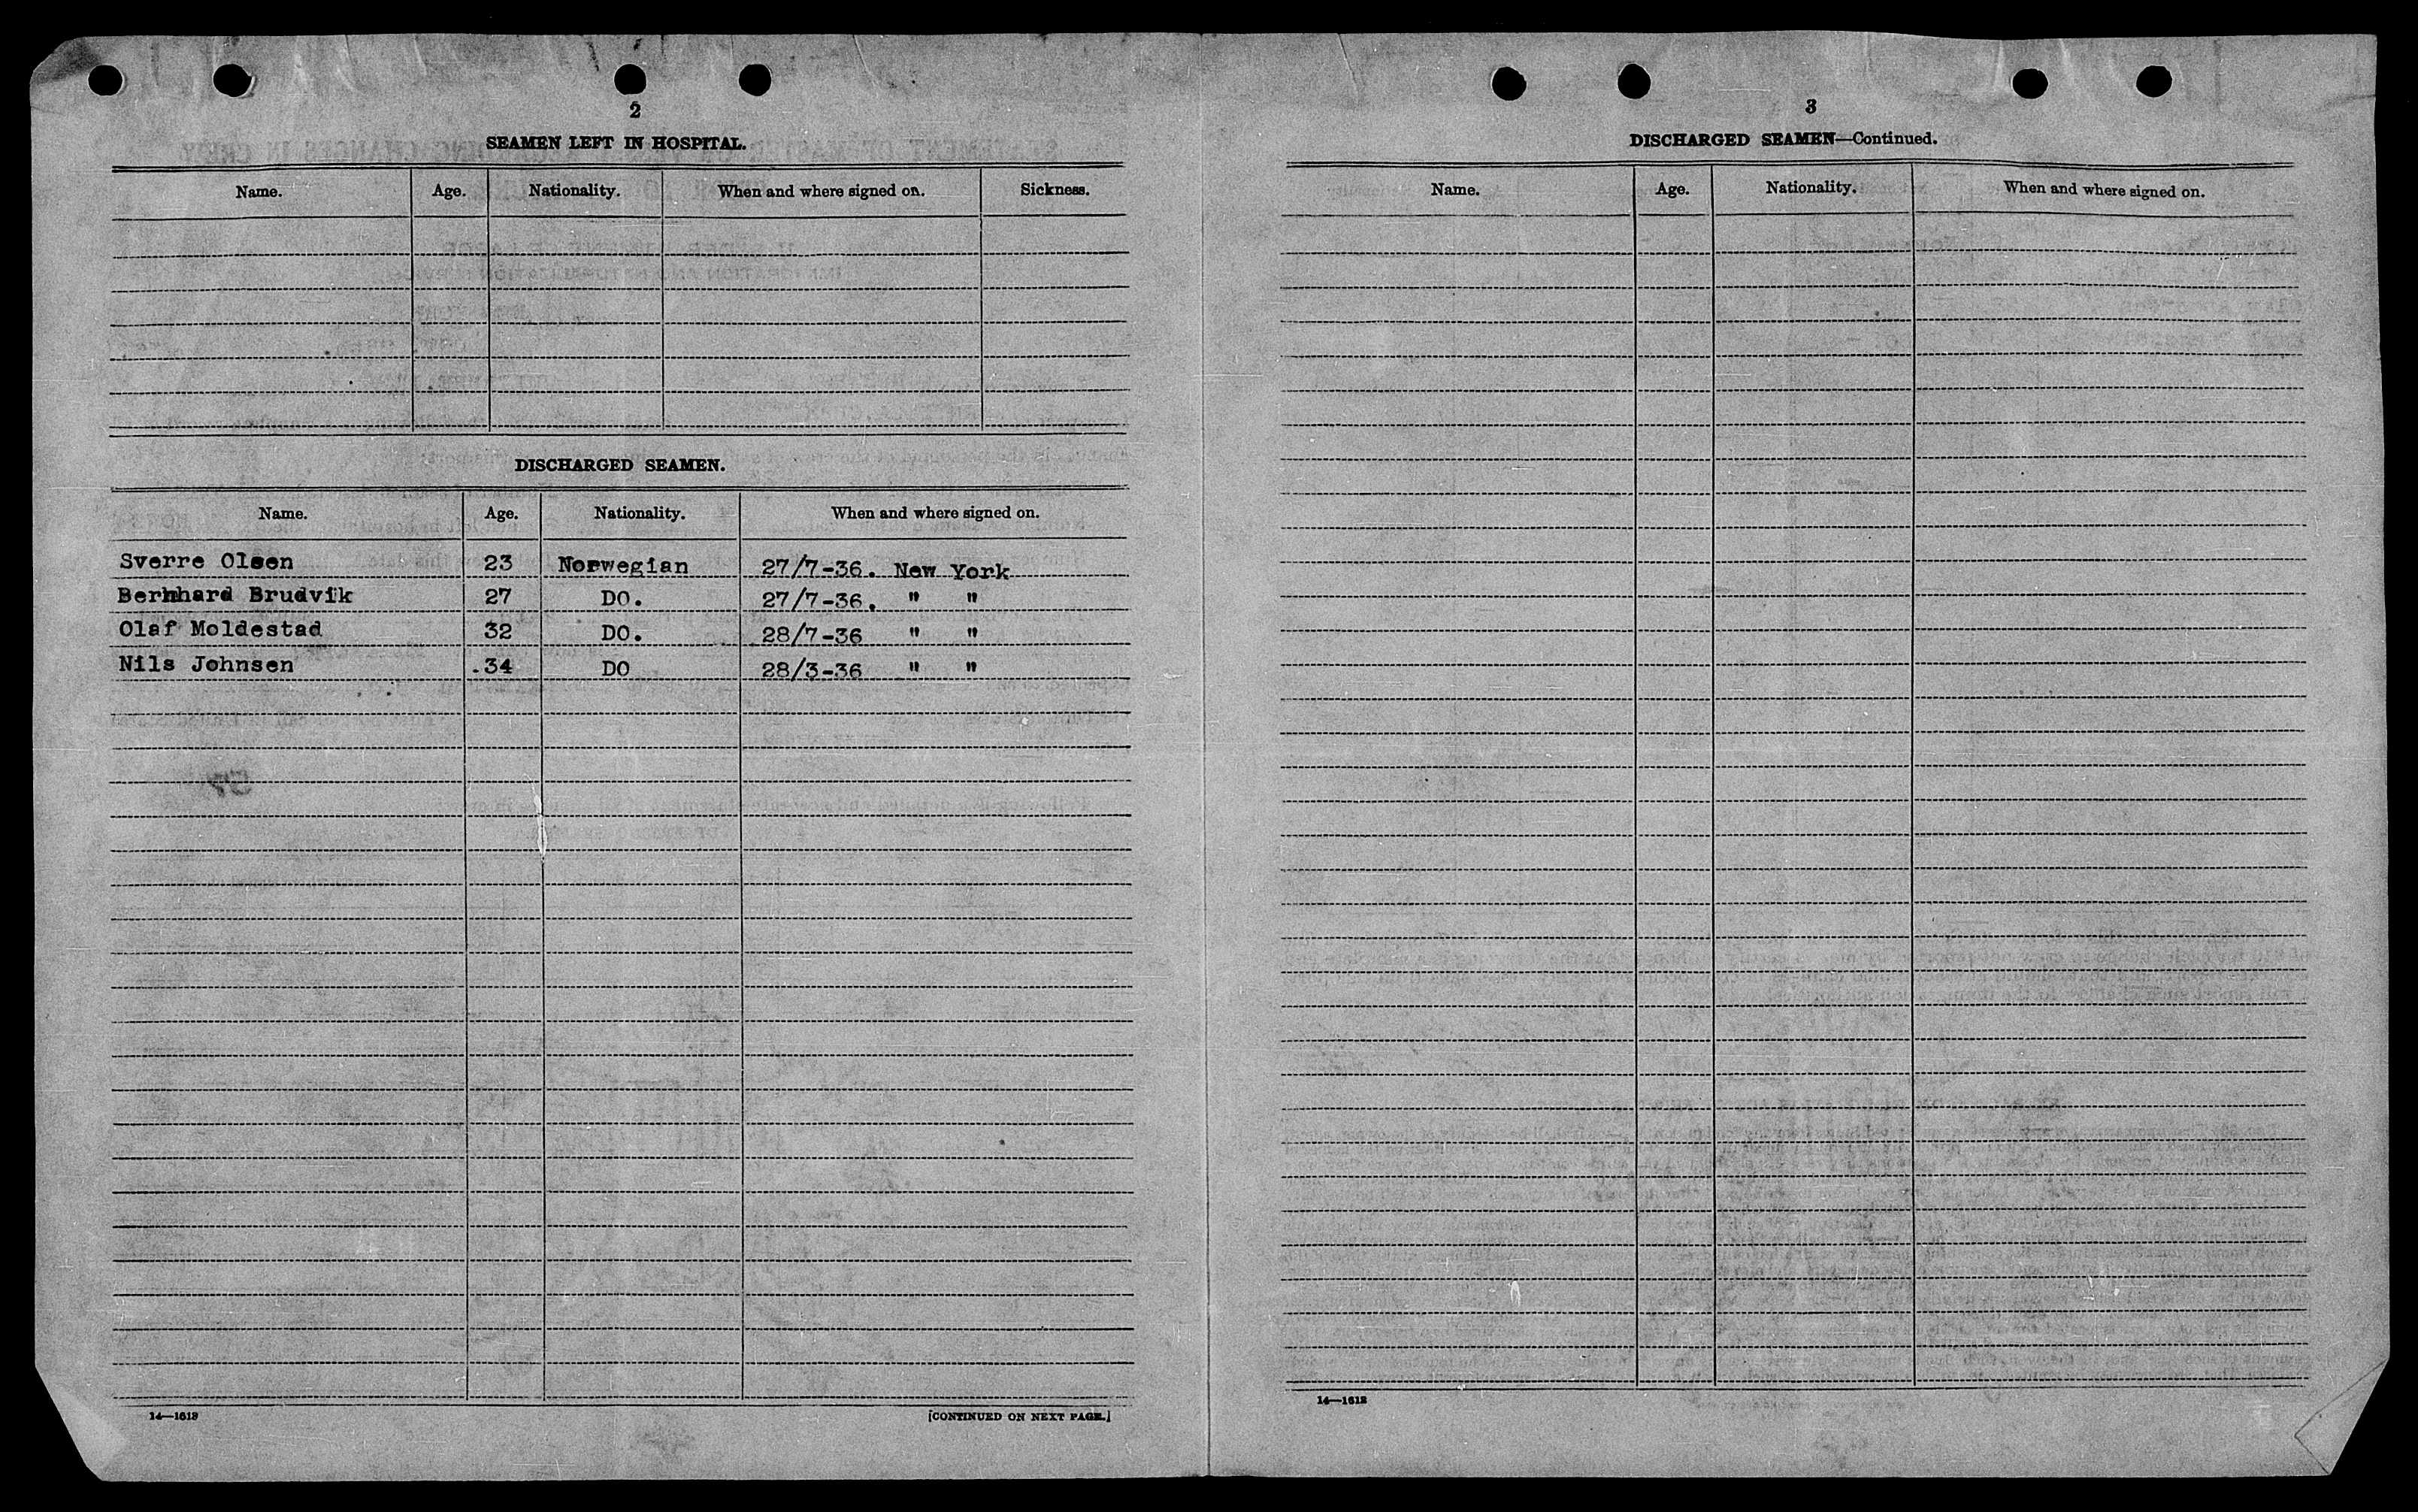 2
SEAMEN LEFT IN HOSPITAL.
Name. Age. Nationality. When and where signed on. Sickness.
DISCHARGED SEAMEN.
Name. Age. Nationality. When and where signed on.
Sverre Olsen 23 Norwegian 27/7-36. New York
Bernhard Brudvik 27 DO. 27/7-36. " "
Olaf Moldestad 32 DO. 28/7-36 " "
Nils Johnsen .34 DO 28/3-36 " "
14—1613
[CONTINUED ON NEXT PAGE.]
3
DISCHARGED SEAMEN—Continued.
Name. Age. Nationality. When and where signed on.
14—1613